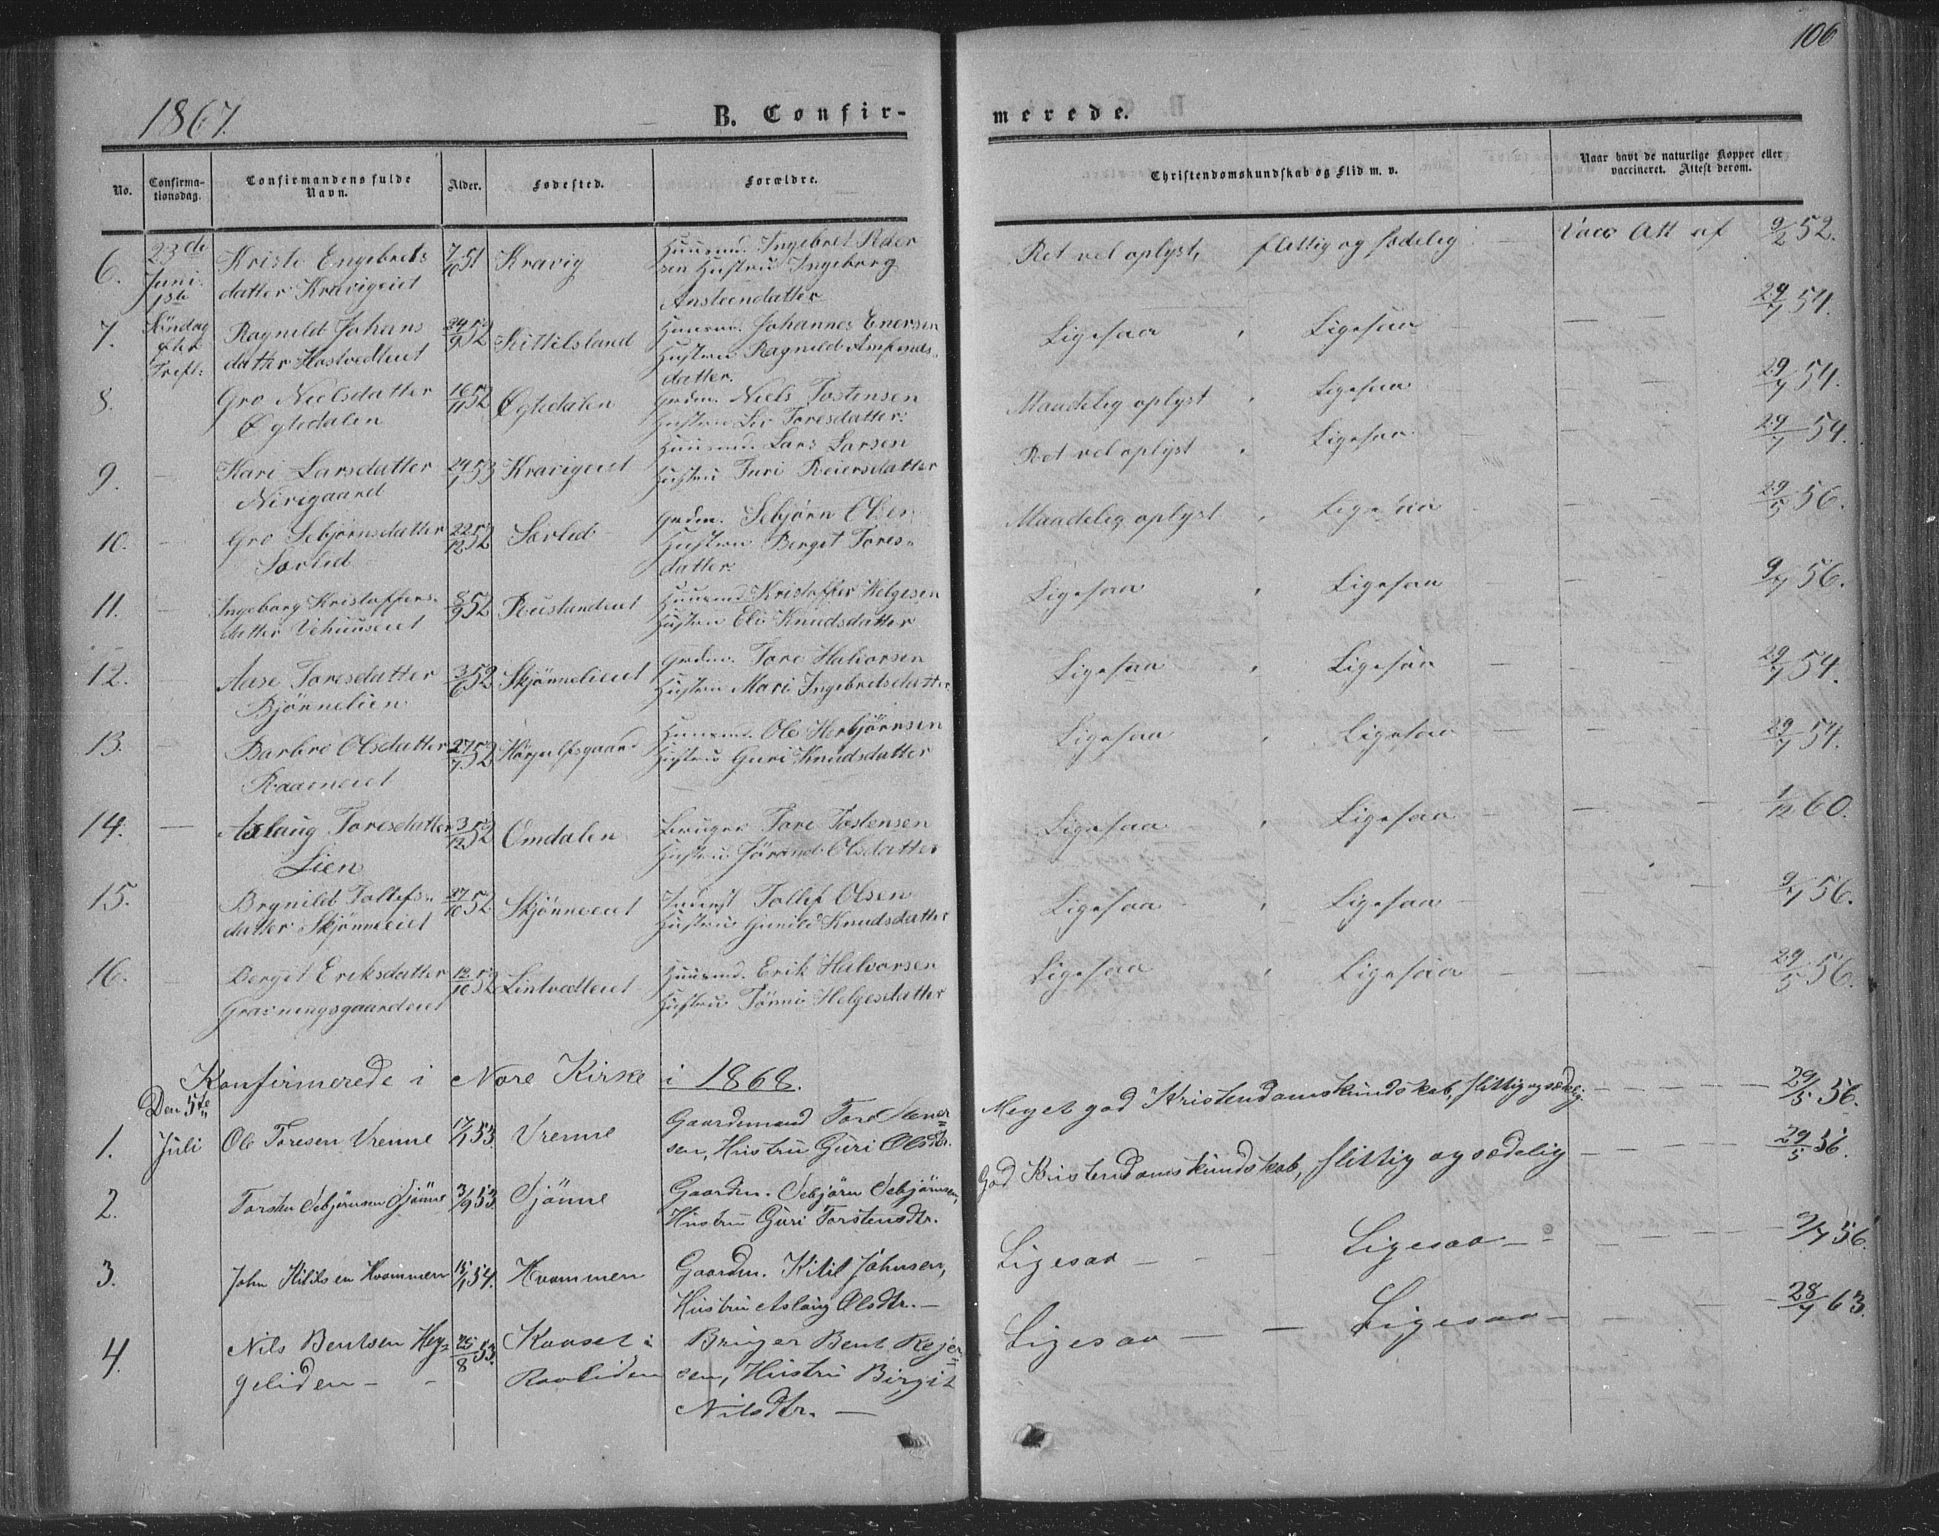 106
1867.
B. Confir-
merede.
No.
Confirma-
tionsdag.
Confirmandens fulde
Navn.
Alder.
Fødested.
Forældre.
Christendomskundskab og Flid m. v.
Naar havt de naturlige Kopper eller
vaccineret. Attest derom.
6.
23de
Juni.
Kristi Engebrets
datter Kravigeiet
7/10 51
Kravig
Huusmd. Ingebret Peder
sen Hustru Ingeborg
Ansteendatter
Ret vel oplyst, flittig og sædelig
Vacc Att af 9/2 52.
7.
1ste
Søndag
efter
Treft:
Ragnild Johans
datter Hostvedteiet
24/9 52
Kittilsland
Huusmd. Johannes Enersen
Hustru Ragnild Amunds-
datter.
Ligesaa Ligesaa
29/7 54.
8.
Gro Nielsdatter
Øgtedalen
16/11 52
Øgtedalen
Grdm. Niels Tostensen
Hustru Liv Toresdatter.
Maadelig oplyst Ligesaa
29/7 54.
9.
Kari Larsdatter
Niregaard
24/1 53
Kravigeiet
Huusmd. Lars Larsen
Hustru Turi Reiersdatter
Ret vel oplyst Ligesaa
29/7 54.
10.
Gro Sebjørnsdatter
Sørlid
22/12 52
Sørlid
Grdm. Sebjørn Olsen
Hustru Berget Tores-
datter.
Maadelig oplyst Ligesaa
29/5 56.
11.
Ingeborg Kristoffers-
datter Vehuuseiet
8/9 52
Ruslandeiet
Huusmd Kristoffer Helgesen
Hustru Eli Knudsdatter
Ligesaa Ligesaa
9/7 56.
12.
Aase Toresdatter
Bjørnelien
3/6 52
Skjønneeiet
Grdm. Tore Halvorsen
Hustru Mari Ingebretsdatter
Ligesaa Ligesaa
29/7 54.
13.
Barbro Olsdatter
Raaeneiet
27/7 52
Hørjulfsgaard
Huusmd. Ole Herbjørnsen
Hustru Guri Knudsdatter
Ligesaa Ligesaa
29/7 54.
14.
Aslaug Toresdatter
Lien
3/12 52
Omdalen
Bruger Tore Tostensen
Hustru Jørand Olsdatter
Ligesaa Ligesaa
1/12 60.
15.
Brynild Tollefs-
datter Skjønneeiet
27/10 52
Skjønneeiet
Inderst Tollef Olsen
Hustru Gunild Knudsdatter
Ligesaa Ligesaa
9/7 56.
16.
Berget Eriksdatter
Grøsningsgaardeiet
12/10 52
Lintvedteiet
Huusmd. Erik Halvorsen
Hustru Tønni Helgesdatter
Ligesaa Ligesaa
29/5 56.
Konfirmerede i Nore Kirke i 1868.
Den 5te
1.
Juli
Ole Toresen Vrenne
17/1 53.
Vrenne
Gaardemand Tore Stener
sen, Hustru Guri Olsdtr.
Meget god Kristendomskundskab, flittig og sædelig
29/5 56.
2.
Torsten Sebjørnsen Sjønne
3/9 53.
Sjønne
Gaardm. Sebjørn Sebjørnsen,
Hustru Guri Torstensdtr.
God Kristendomskundskab, flittig og sædelig
29/5 56.
3.
John Kitilsen Kvammen
15/1 54.
Kvammen
Gaardm. Kitil Johnsen,
Hustru Aslaug Olsdtr. —
Ligesaa — — Ligesaa —
9/7 56.
4.
Nils Bentsen Heg-
geliden —
25/8 53.
Kaaset i
Raaliden
Bruger Bent Rejer
sen, Hustru Birgit
Nilsdtr. —
Ligesaa — — Ligesaa —
28/7 63.